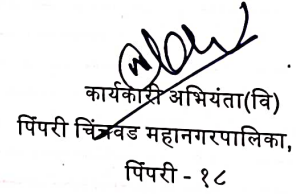 कार्यकारी अभियंता(वि)
पिंपरी चिंचवड महानगरपालिका,
पिंपरी - १८